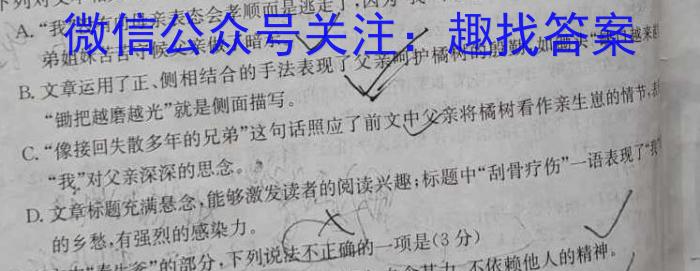 微信公众号关注：趣找答案
A.“我
弟姐妹
B.文章运用了正、侧相结合的手法表现了父亲呵护橘树的
“锄把越磨越光”就是侧面描写。
C.“像接回失散多年的兄弟”这句话照应了前文中父亲将橘树看作亲生崽的情节，表
“我”对父亲深深的思念。
D.文章标题充满悬念，能够激发读者的阅读兴趣；标题中“刮骨疗伤”一语表现了“我”
的乡愁，有强烈的感染力。
的部分，下列说法不正确的一项是(3分)
不依赖他人的精神。